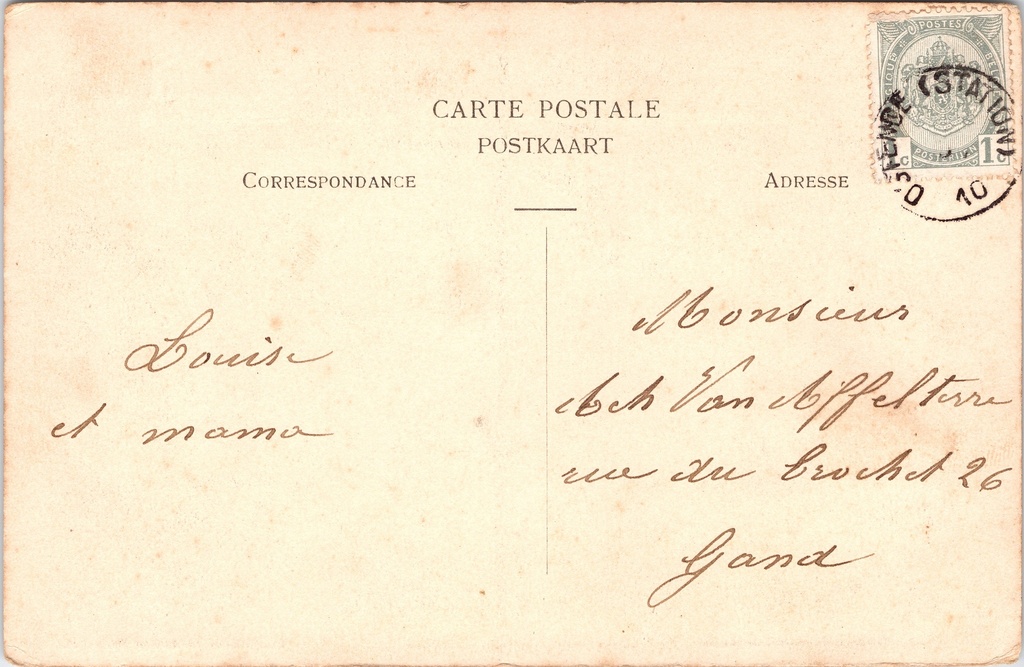 CARTE POSTALE
POSTKAART
CORRESPONDANCE
ADRESSE
POSTES
1c
OSTENDE (STATION)
10
Louise
et mama
Monsieur
Ach Van Affelterre
rue du Crochet 26
Gand